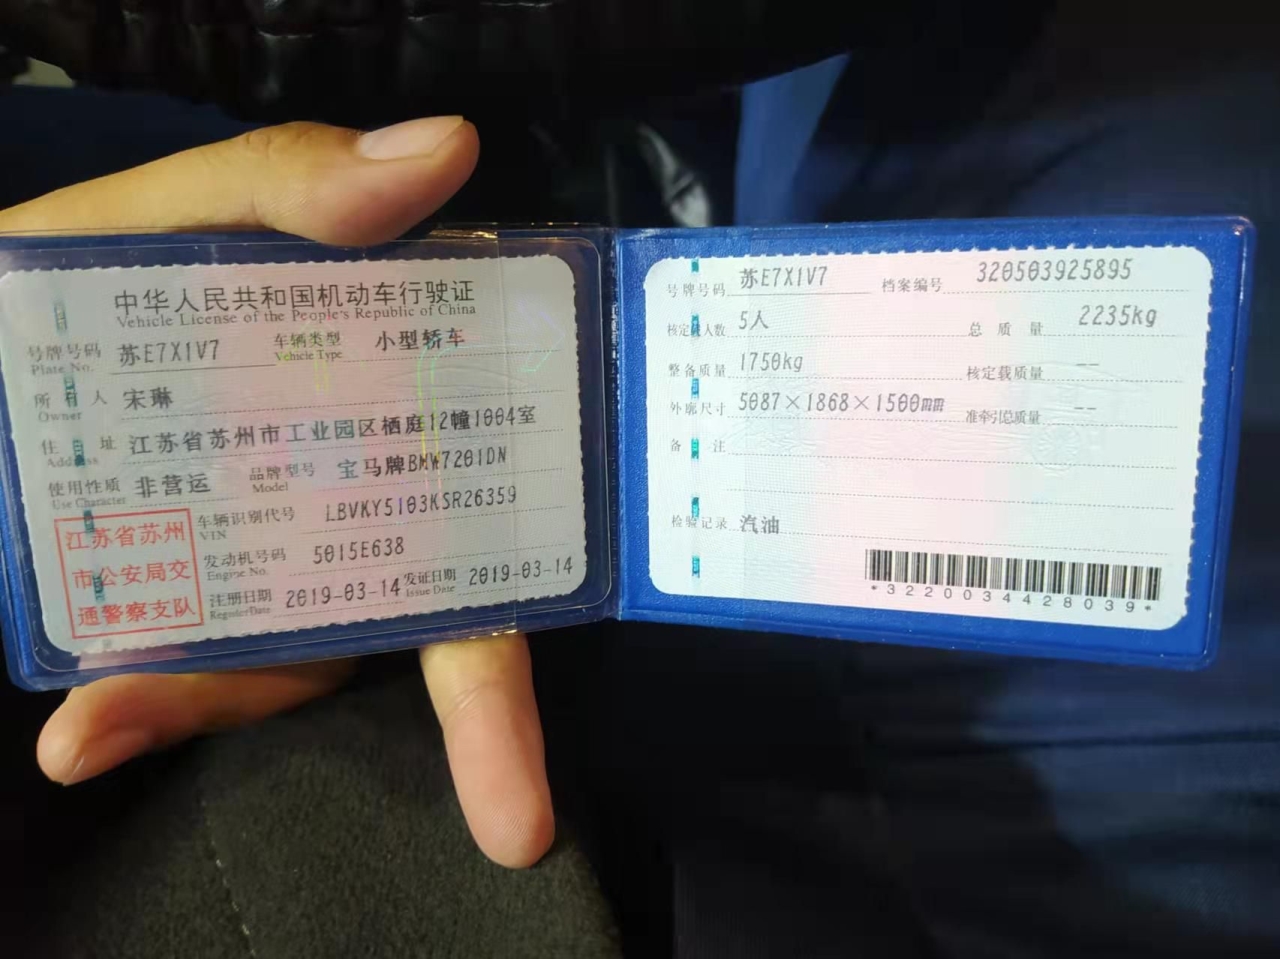 中华人民共和国机动车行驶证
Vehicle License of the People's Republic of China
号牌号码 苏E7X1V7 车辆类型 小型轿车
Plate No. Vehicle Type
所有人 宋琳
Owner
住址 江苏省苏州市工业园区栖庭12幢1004室
Address
使用性质 非营运 品牌型号 宝马牌BMW7201DN
Use Character Model
江苏省苏州
市公安局交
通警察支队
车辆识别代号 LBVKY5103KSR26359
VIN
发动机号码 5015E638
Engine No.
注册日期 2019-03-14 发证日期 2019-03-14
Register Date Issue Date
号牌号码 苏E7X1V7 档案编号 320503925895
核定载人数 5人 总质量 2235kg
整备质量 1750kg 核定载质量 --
外廓尺寸 5087×1868×1500mm 准牵引总质量 --
备注
检验记录 汽油
*3220034428039*